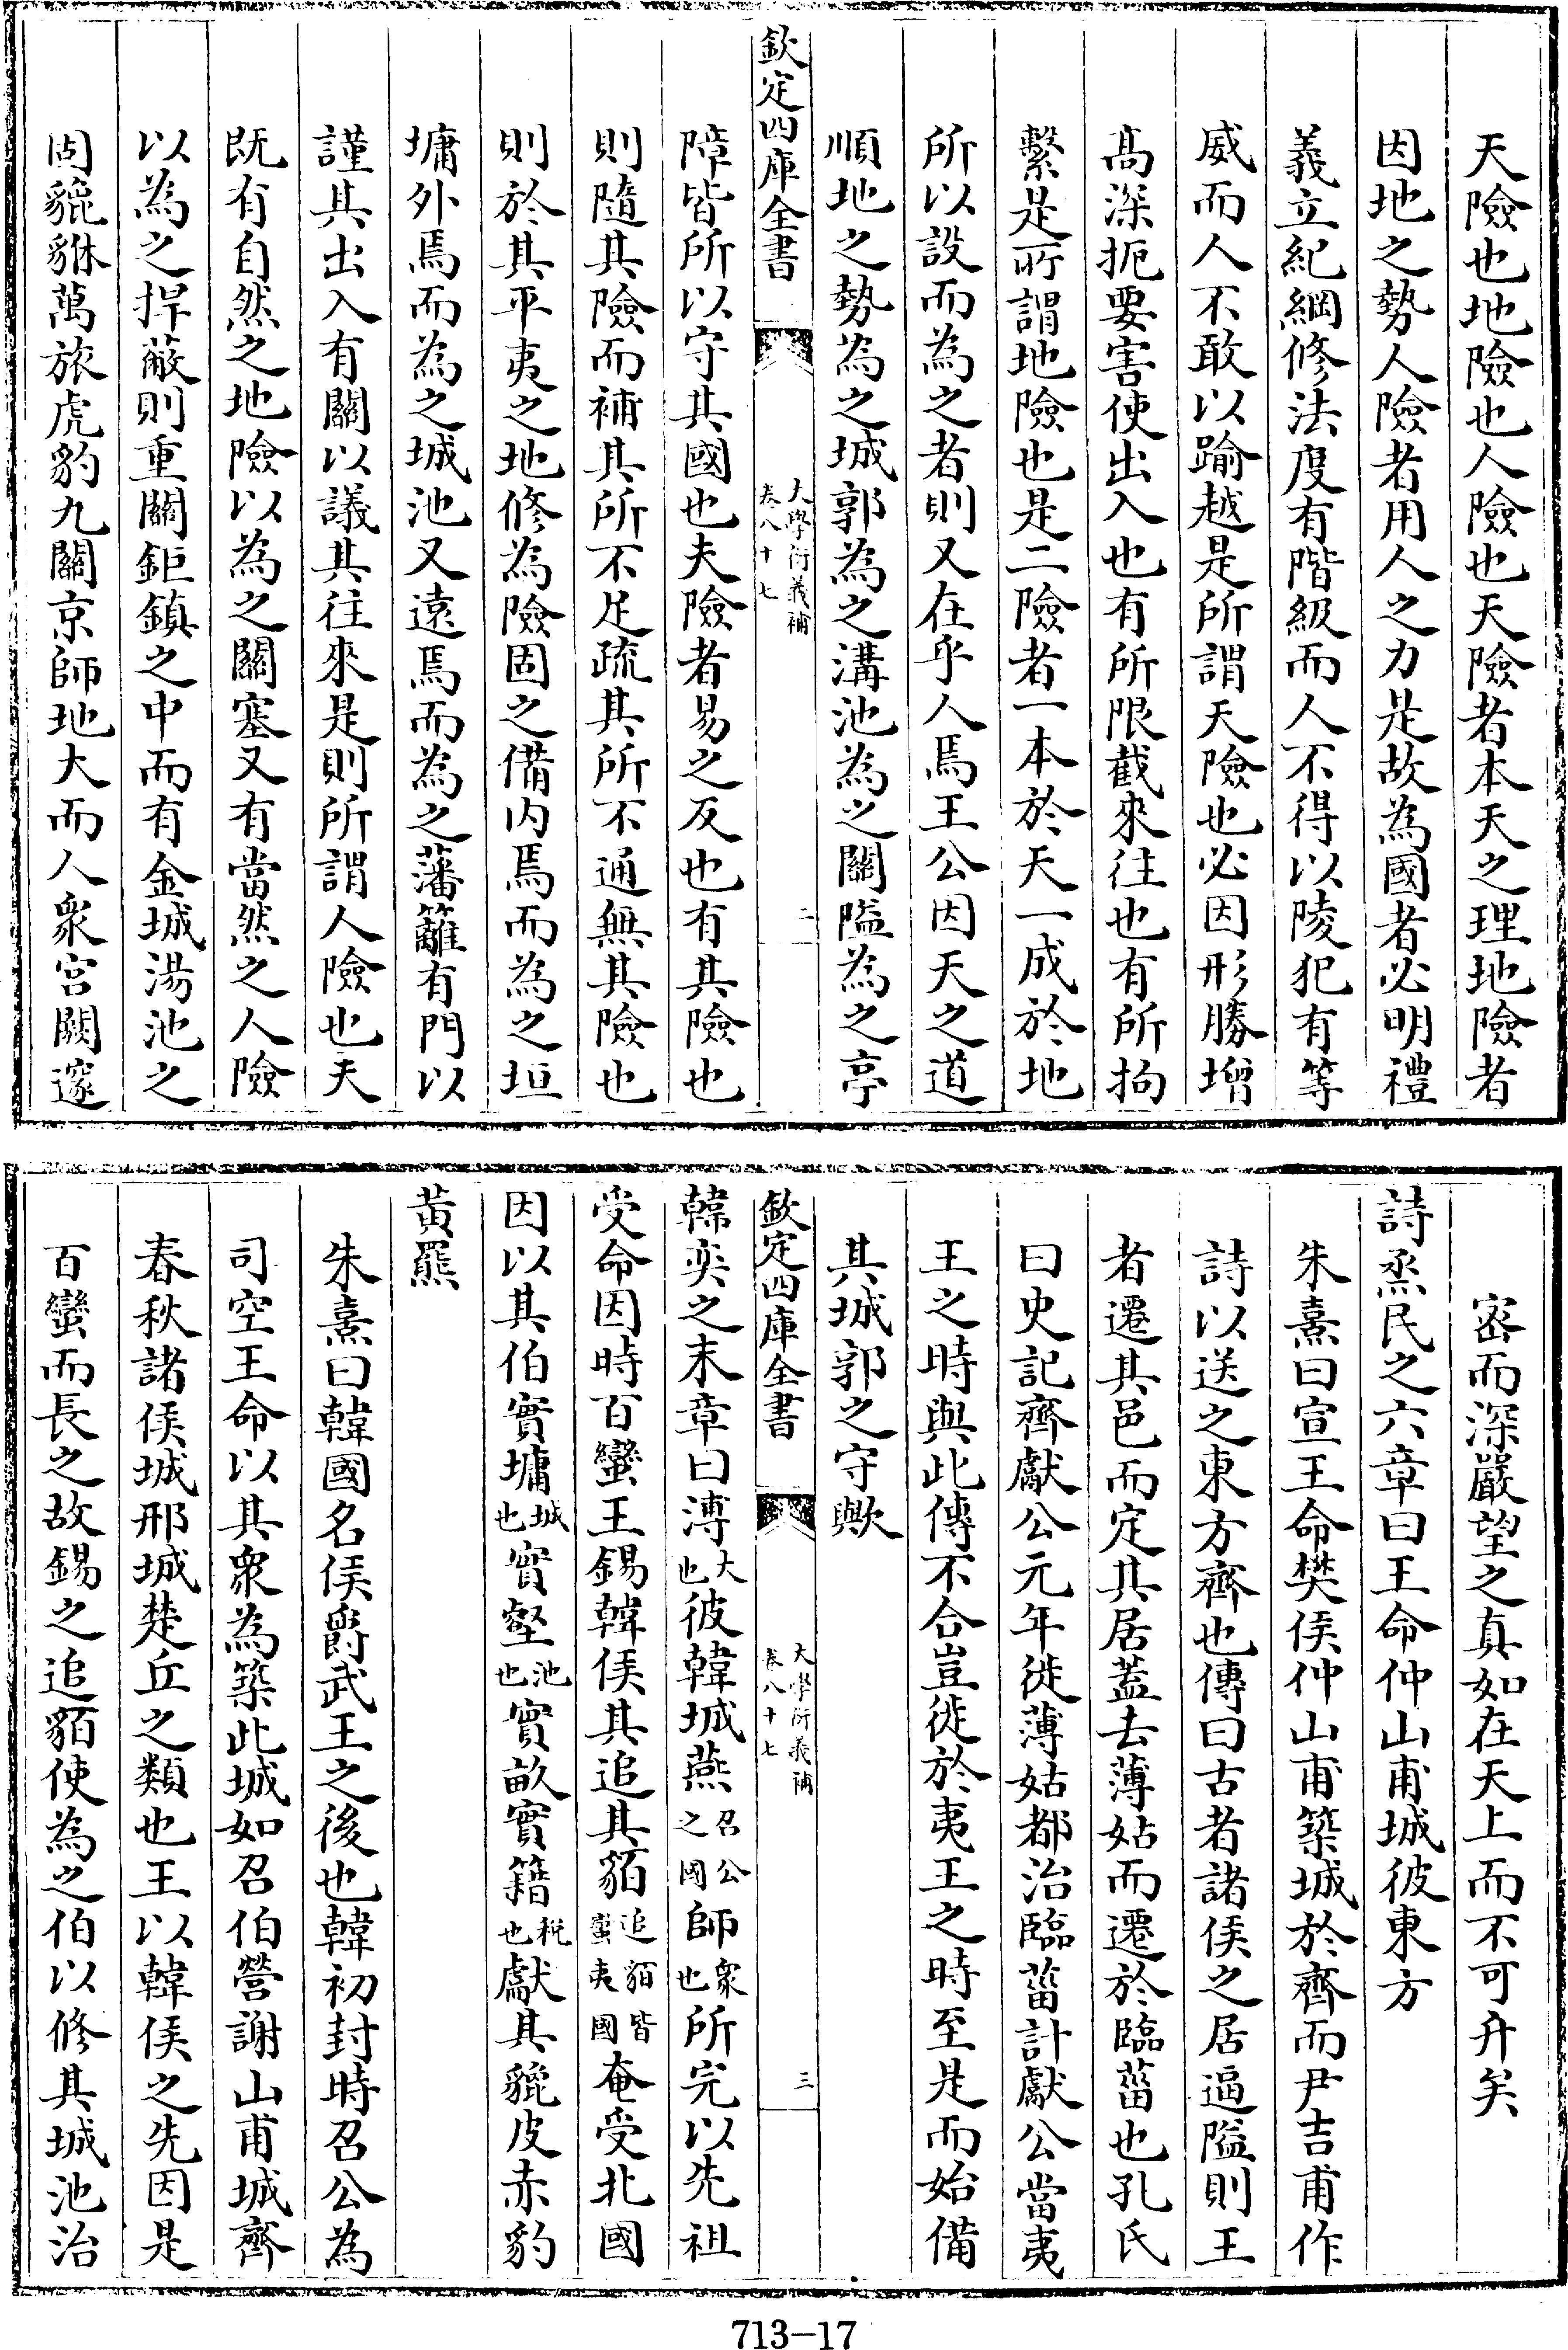 天險也地險也人險也天險者本天之理地險者
因地之勢人險者用人之力是故為國者必明禮
義立紀綱修法度有階級而人不得以陵犯有等
威而人不敢以踰越是所謂天險也必因形勝增
髙深扼要害使出入也有所限截來往也有所拘
繫是所謂地險也是二險者一本於天一成於地
所以設而為之者則又在乎人焉王公因天之道
順地之勢為之城郭為之溝池為之關隘為之亭
欽定四庫全書
大學衍義補
卷八十七
二
障皆所以守其國也夫險者易之反也有其險也
則隨其險而補其所不足疏其所不通無其險也
則於其平夷之地修為險固之備内焉而為之垣
墉外焉而為之城池又遠焉而為之藩籬有門以
謹其出入有關以議其往來是則所謂人險也夫
既有自然之地險以為之關塞又有當然之人險
以為之捍蔽則重關鉅鎮之中而有金城湯池之
固貔貅萬旅虎豹九關京師地大而人衆宫闕邃
密而深嚴望之真如在天上而不可升矣
詩烝民之六章曰王命仲山甫城彼東方
朱熹曰宣王命樊侯仲山甫築城於齊而尹吉甫作
詩以送之東方齊也傳曰古者諸侯之居逼隘則王
者遷其邑而定其居蓋去薄姑而遷於臨菑也孔氏
曰史記齊獻公元年徙薄姑都治臨菑計獻公當夷
王之時與此傳不合豈徙於夷王之時至是而始備
其城郭之守歟
欽定四庫全書
大學衍義補
卷八十七
三
韓奕之末章曰溥大也彼韓城燕召公之國師衆也所完以先祖
受命因時百蠻王錫韓侯其追其貊追貊皆蠻夷國奄受北國
因以其伯實墉城也實壑池也實畝實籍税也獻其貔皮赤豹
黄羆
朱熹曰韓國名侯爵武王之後也韓初封時召公為
司空王命以其衆為築此城如召伯營謝山甫城齊
春秋諸侯城邢城楚丘之類也王以韓侯之先因是
百蠻而長之故錫之追貊使為之伯以修其城池治
713-17